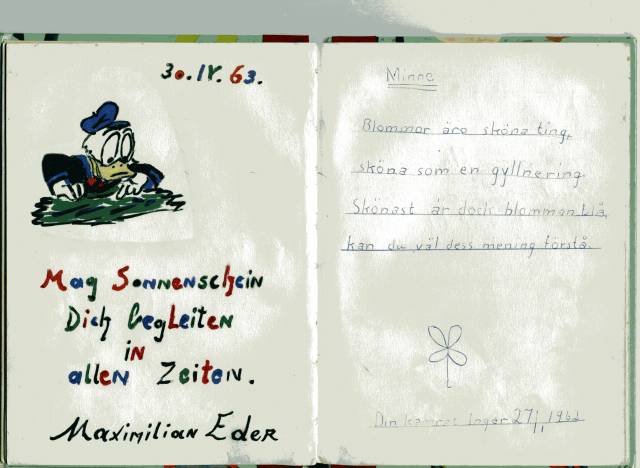 30.IV.63.
Mag Sonnenschein
Dich begleiten
in
allen Zeiten.
Maximilian Eder
Minne
Blommor äro sköna ting,
sköna som en gyllnering
Skönast är dock blomman blå
kan du väl dess mening förstå.
Din kamrat Inger 27/, 1962